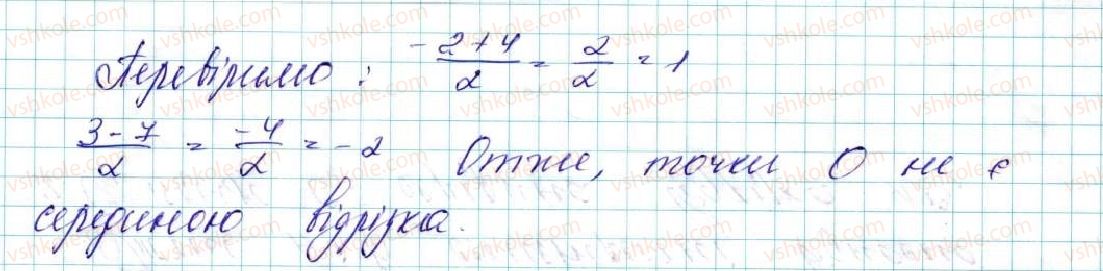 Перевіримо: (-2+4)/2 = 2/2 = 1
(3-7)/2 = -4/2 = -2 Отже, точки O не є
серединою відрізка.